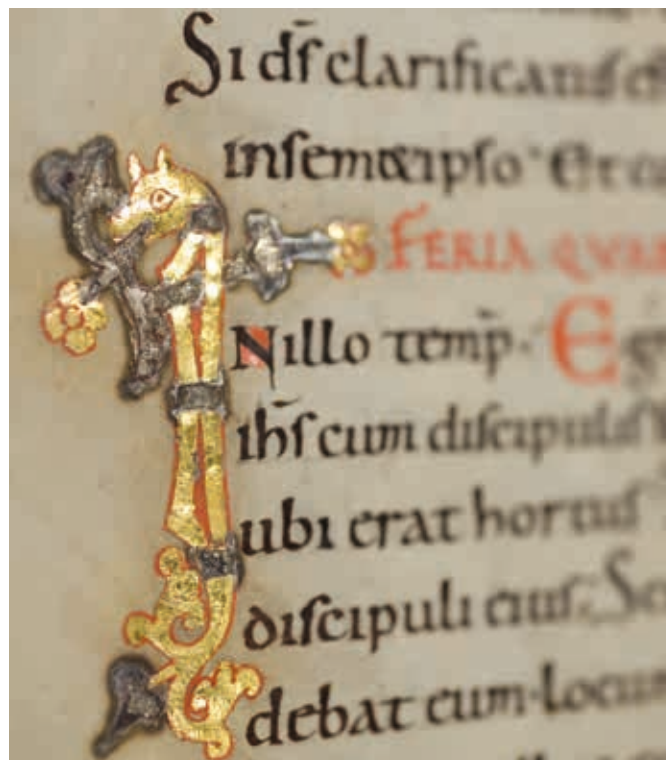 Si ds̄ clarificatus
insemetipso · Et
FERIA
Nillo temp̄· Eg
ih̄s cum discipulis
ubi erat hortus
discipuli eius; Sc
debat eum·locum